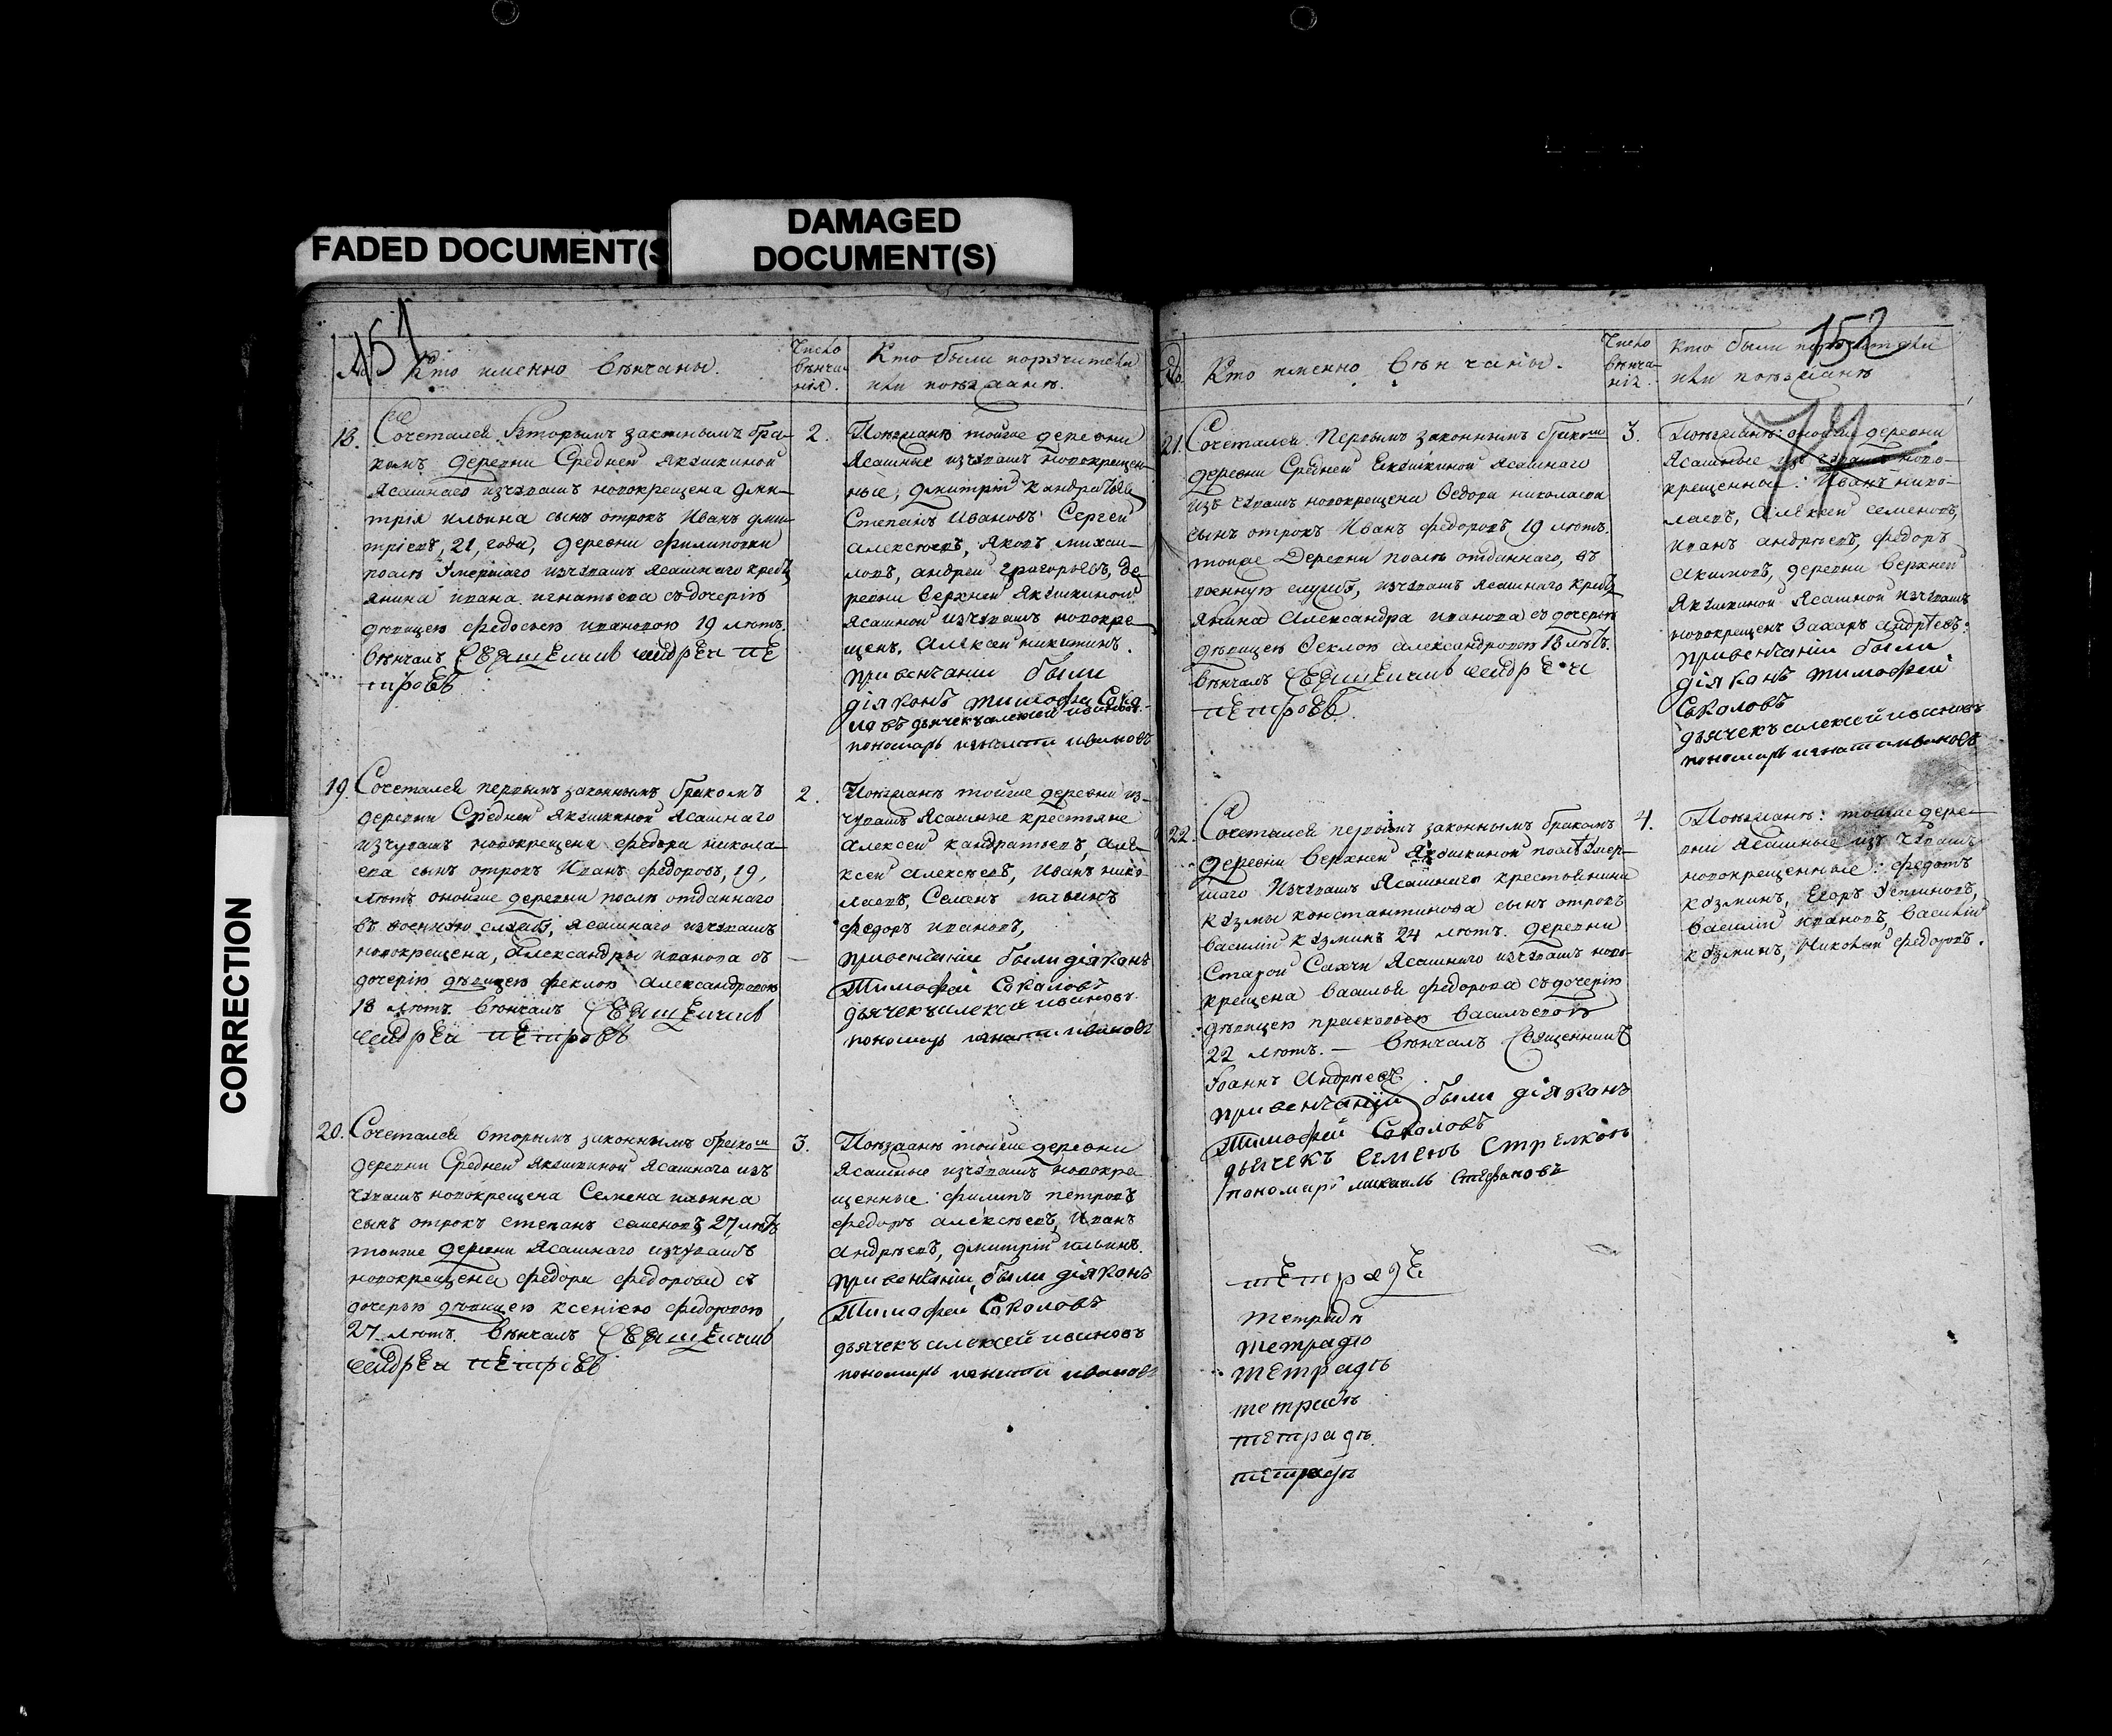 FADED DOCUMENT(S
DAMAGED
DOCUMENT(S)
CORRECTION
151
№
Кто именно вѣнчаны.
Число
вѣнча-
нія.
Кто были поручители
или поѣзжанѣ.
18.
Сочетался вторымъ законнымъ бра-
комъ деревни Средней Якушкиной
ясашнаго изчувашъ новокрещена дми-
трія ильина сынъ отрокъ Иванъ дми-
тріевъ, 21, года, деревни филиповки
послѣ умершаго изчувашъ ясашнаго кресть
янина ивана игнатьева съдочерію
дѣвицею федосьею ивановою 19 лѣтъ.
вѣнчалъ священникъ андрей пе
тровъ
2.
Поѣзжанѣ тойже деревни
Ясашные изчувашъ новокрещен-
ные, дмитрій кандратьевъ
Степанъ Ивановъ Сергей
алексѣевъ, яковъ михаи-
ловъ, андрей григорьевъ, де
ревни верхней якушкиной
ясашной изчувашъ новокре
щенъ, алексей никитинъ.
привенчании были
діяконъ тимофей Соко
ловъ дьячекъ алексей ивановъ
пономарь игнатий ивановъ
19.
Сочетался первымъ законнымъ бракомъ
деревни Средней Якушкиной ясашнаго
изчувашъ новокрещена федора никола-
ева сынъ отрокъ Иванъ федоровъ, 19,
лѣтъ онойже деревни послѣ отданнаго
въ военную службу, ясашнаго изчувашъ
новокрещена, Александра иванова съ
дочерію дѣвицею феклою александровою
18 лѣтъ. вѣнчалъ священникъ
андрей петровъ
2.
Поѣзжанѣ тойже деревни из-
чувашъ ясашные крестьяне
алексей кандратьевъ, але-
ксей алексѣевъ, Иванъ нико-
лаевъ, Семенъ ильинъ
федоръ ивановъ,
привенчании были діяконъ
Тимофей Соколовъ
дьячекъ алексей ивановъ
пономарь игнатий ивановъ
20.
Сочетался вторымъ законнымъ бракомъ
деревни Средней Якушкиной ясашнаго изъ
чувашъ новокрещена Семена ильина
сынъ отрокъ степанъ семеновъ 27, лѣтъ
тойже деревни ясашнаго изчувашъ
новокрещена федора федорова съ
дочерью дѣвицею ксеніею федоровою
27 лѣтъ. вѣнчалъ священникъ
андрей петровъ
3.
Поѣзжанѣ тойже деревни
Ясашные изчувашъ новокре
щенные: филипъ петровъ
федоръ алексѣевъ, Иванъ
Андрѣевъ, дмитрій ильинъ.
привенчании, были діяконъ
Тимофеи Соколовъ
дьячекъ алексей ивановъ
пономарь игнатий ивановъ
152
№
Кто именно вѣнчаны.
Число
вѣнча-
нія.
Кто были поручители
или поѣзжанѣ
21.
Сочетался первымъ законнымъ бракомъ
деревни Средней Екушкиной ясашнаго
изъ чувашъ новокрещена Ѳедора николаева
сынъ отрокъ Иванъ федоровъ 19 лѣтъ.
тойже Деревни послѣ отданнаго, въ
военную службу, изчувашъ ясашнаго кресть
янина Александра иванова съ дочерью
дѣвицею Ѳеклою александровою 18 лѣтъ.
вѣнчалъ священникъ андрей
петровъ.
3.
Поѣзжанѣ: онойже деревни
ясашные изъ чувашъ ново-
крещенные: Иванъ нико-
лаевъ, алексей семеновъ,
иванъ андрѣевъ, федоръ
акимовъ, деревни верхней
якушкиной ясашной изчувашъ
новокрещенъ Захаръ андрѣевъ:
привенчании были
діяконъ тимофей
Соколовъ
дьячекъ алексей ивановъ
пономарь игнатий ивановъ
22.
Сочетался первымъ законнымъ бракомъ
деревни верхней якушкиной послѣ умер-
шаго изчувашъ ясашнаго крестьянина
кузмы константинова сынъ отрокъ
василій кузминъ 24 лѣтъ. деревни
Старой Сахчи ясашнаго изчувашъ ново-
крещена василья федорова съдочерію
дѣвицею прасковьею васильевою
22 лѣтъ. — вѣнчалъ священникъ
Іоаннъ Андрѣевъ
привенчании были діяконъ
Тимофей Соколовъ
дьячекъ семенъ Стрелковъ
пономарь михаилъ стефановъ
4.
Поѣзжанѣ: тойже дере-
вни ясашные изъ чувашъ
новокрещенные: федотъ
кузминъ, Егоръ устиновъ,
василій ивановъ, василій
кузминъ, николай федоровъ.
тетраде
тетради
тетрадю
тетрадь
тетрадь
тетрадь
тетрадь